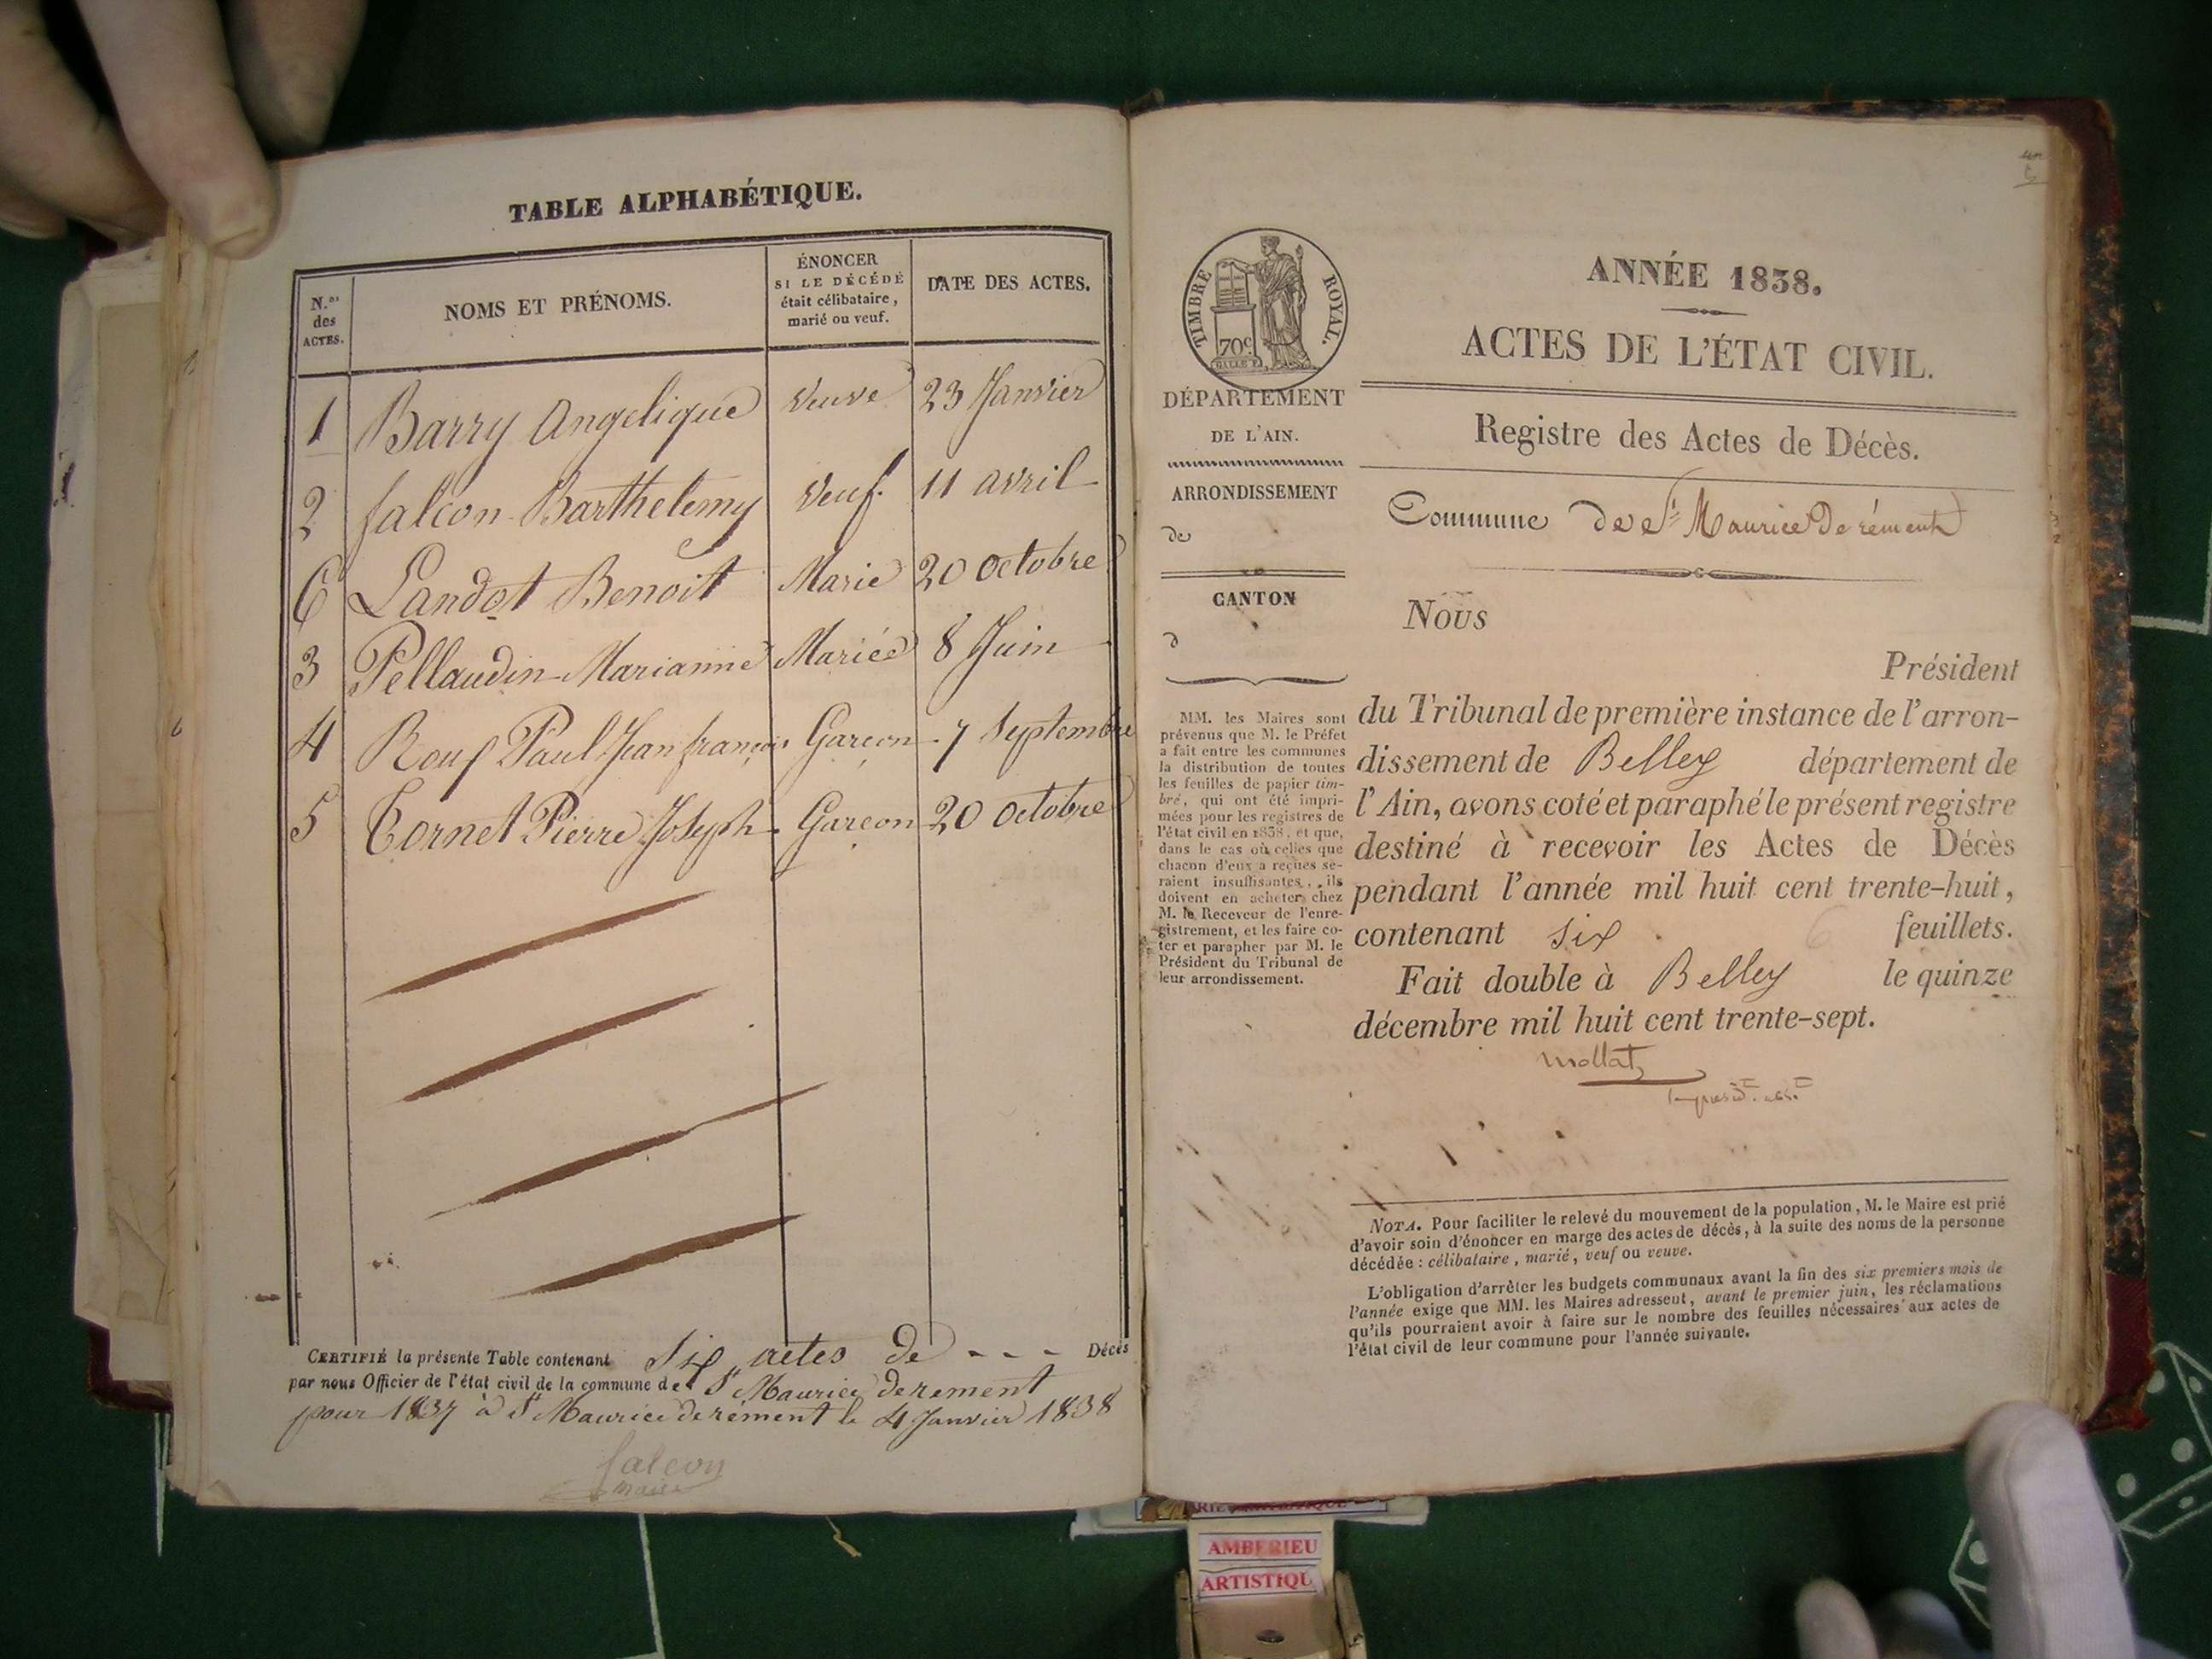 TABLE ALPHABÉTIQUE.
N.os des ACTES.
NOMS ET PRÉNOMS.
ÉNONCER
SI LE DÉCÉDÉ
était célibataire,
marié ou veuf.
DATE DES ACTES.
1 Barry Angelique veuve 23 Janvier
2 falcon Barthelemy veuf. 11 avril
6 Landot Benoit Marié 20 octobre
3 Pellaudin Marianne Mariée 8 Juin
4 Rouf Paul Jean françois Garçon 7 Septembre
5 Cornet Pierre Joseph Garçon 20 octobre
CERTIFIÉ la présente Table contenant Six actes de - - - Décès
par nous Officier de l'état civil de la commune de St Maurice de rement
pour 1837 à St Maurice de rément le 4 Janvier 1838
falcon
maire
un
TIMBRE ROYAL.
70c
DÉPARTEMENT
DE L'AIN.
ARRONDISSEMENT
de
CANTON
d
MM. les Maires sont
prévenus que M. le Préfet
a fait entre les communes
la distribution de toutes
les feuilles de papier tim-
bré, qui ont été impri-
mées pour les registres de
l'état civil en 1838, et que,
dans le cas où celles que
chacun d'eux a reçues se-
raient insuffisantes, ils
doivent en acheter chez
M. le Receveur de l'enre-
gistrement, et les faire co-
ter et parapher par M. le
Président du Tribunal de
leur arrondissement.
ANNÉE 1838.
ACTES DE L'ÉTAT CIVIL.
Registre des Actes de Décès.
Commune de St Maurice De rément
Nous
Président
du Tribunal de première instance de l'arron-
dissement de Belley département de
l'Ain, avons coté et paraphé le présent registre
destiné à recevoir les Actes de Décès
pendant l'année mil huit cent trente-huit,
contenant six 6 feuillets.
Fait double à Belley le quinze
décembre mil huit cent trente-sept.
Mollat
NOTA. Pour faciliter le relevé du mouvement de la population, M. le Maire est prié
d'avoir soin d'énoncer en marge des actes de décès, à la suite des noms de la personne
décédée : célibataire, marié, veuf ou veuve.
L'obligation d'arrêter les budgets communaux avant la fin des six premiers mois de
l'année exige que MM. les Maires adressent, avant le premier juin, les réclamations
qu'ils pourraient avoir à faire sur le nombre des feuilles nécessaires aux actes de
l'état civil de leur commune pour l'année suivante.
AMBERIEU
ARTISTIQU